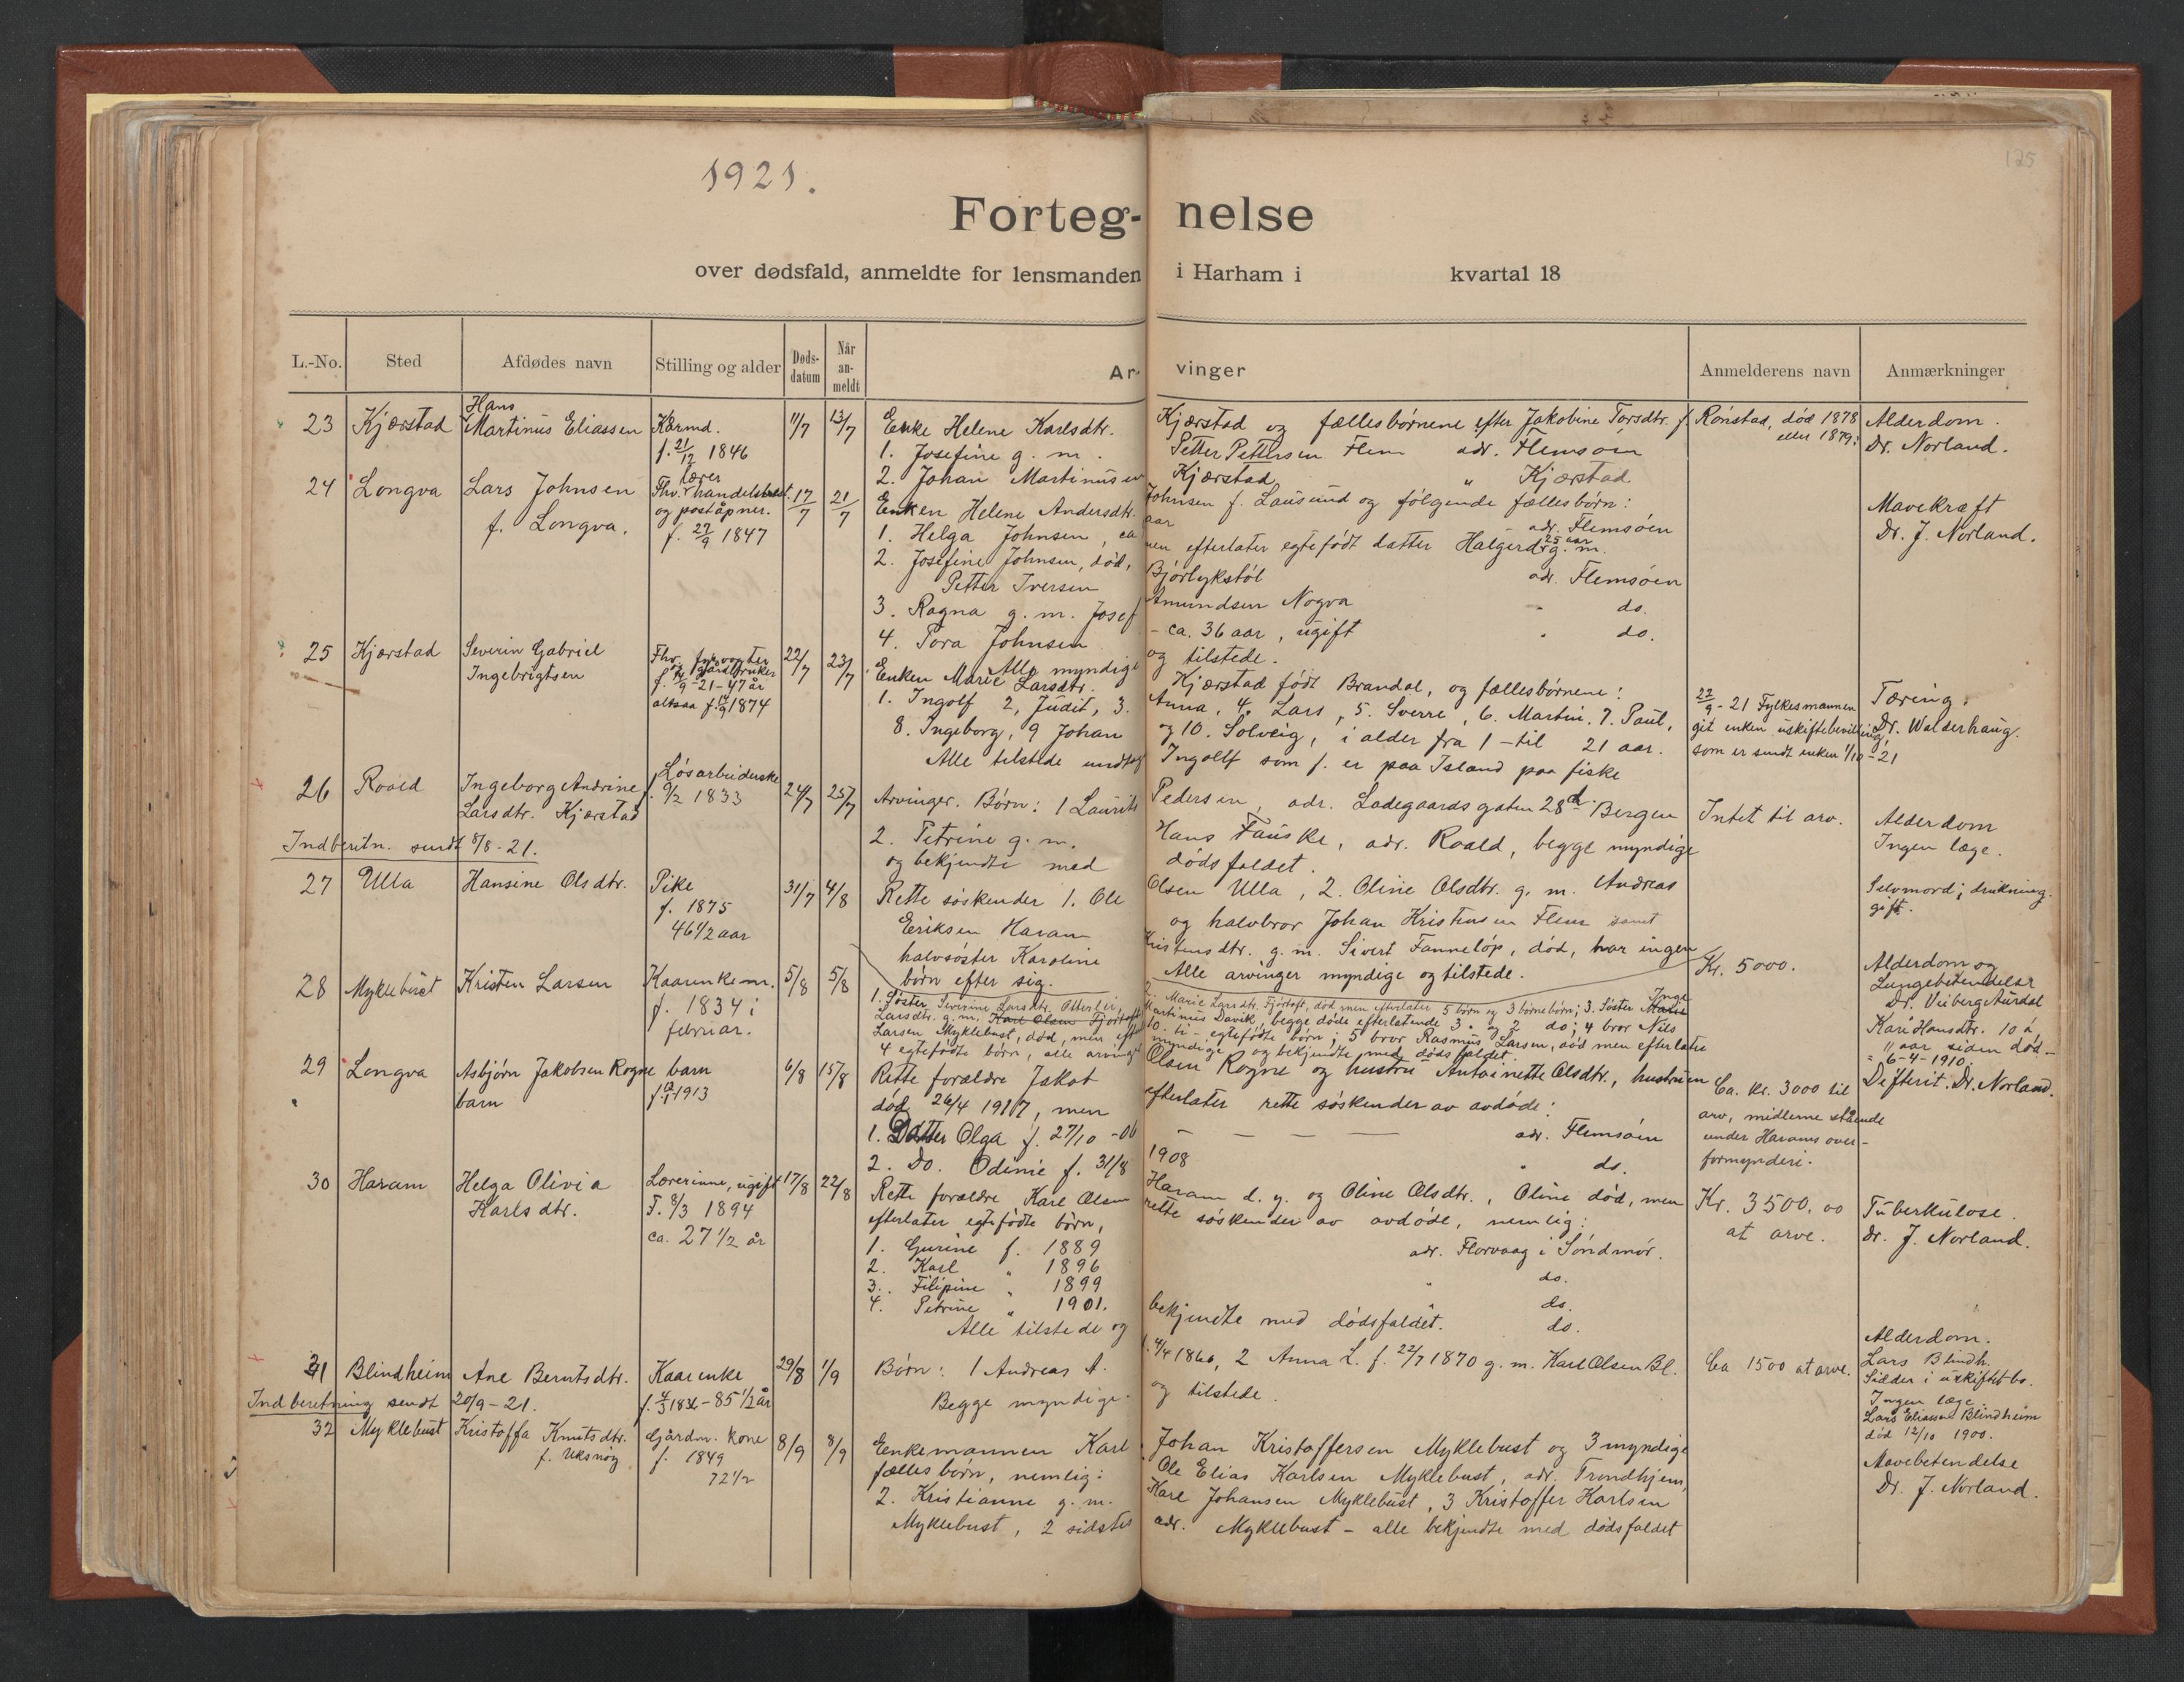 1921.
125
Forteg- nelse
over dødsfald, anmeldte for lensmanden i Harham i kvartal 18
L.-No. Sted Afdødes navn Stilling og alder Døds-datum Når an-meldt Ar- vinger Anmelderens navn Anmærkninger
23 Kjærstad Hans Martinus Eliassen Kårmd. f. 21/12 1846 11/7 13/7
Enke Helene Karlsdtr. Kjærstad og fællesbørnene efter Jakobine Torsdtr. f. Rønstad, død 1878 eller 1879:
1. Josefine g. m. Petter Pettersen Flem adr. Flemsøen
2. Johan Martinusen Kjærstad " Kjærstad
Alderdom.
Dr. Norland.
24 Longva Lars Johnsen f. Longva. Fhv. lærer handelsbest. og poståpner. f. 27/9 1847 17/7 21/7
Enken Helene Andersdtr. Johnsen f. Lausund og følgende fællesbørn:
1. Helga Johnsen, ca aar adr. Flemsøen
2. Josefine Johnsen, død, men efterlater egtefødt datter Halgerd 25 aar g. m.
Petter Iversen Bjørlykstøl adr. Flemsøen
3. Ragna g. m. Josef Amundsen Nogva - do.
4. Tora Johnsen - ca. 36 aar, ugift . do.
Alle myndige og tilstede.
Mavekræft
Dr. J. Norland.
25 Kjærstad Severin Gabriel Ingebrigtsen Fhv. fyrvogter gårdbruker f. 14/9 -21-47 år altsaa f. 14/9 1874 22/7 23/7
Enken Marie Larsdtr. Kjærstad født Brandal, og fællesbørnene:
1. Ingolf 2, Judit, 3. Anna, 4. Lars, 5. Sverre, 6. Martin. 7. Paul,
8. Ingeborg, 9 Johan og 10. Solveig, i alder fra 1 - til 21 aar.
Alle tilstede undtag Ingolf som f. er paa Island paa fiske
22/9 - 21 Fylkesmannen
git enken uskiftebevilling
som er sendt enken 1/10 - 21
Tæring.
Dr. Walderhaug.
26 Roald Ingeborg Andrine Larsdtr. Kjærstad Løsarbeiderske f. 9/2 1833 24/7 25/7
Arvinger. Børn: 1 Laurits Pedersen, adr. Ladegaardsgaten 28d Bergen
2. Petrine g. m. Hans Fauske, adr. Roald, begge myndige
og bekjendte med dødsfaldet.
Intet til arv.
Alderdom
Ingen læge.
Indberetn. sendt 8/8 - 21.
27 Ulla Hansine Olsdtr. Pike f. 1875 46 1/2 aar 31/7 4/8
Rette søskender 1. Ole Olsen Ulla, 2. Oline Olsdtr. g. m. Andreas
Eriksen Haram og halvbror Johan Kristensen Flem samt
halvsøster Karoline Kristensdtr. g. m. Sivert Fanneløp, død, har ingen
børn efter sig. Alle arvinger myndige og tilstede.
Selvmord; drukning.
gift.
28 Myklebust Kristen Larsen Kaarenkem. f. 1834 i februar. 5/8 5/8
1. Søster Severine Larsdtr. Otterlei, 2. Marie Larsdtr. Fjørtoft, død men efterlater 5 børn og 3 børnebørn; 3. Søster Marie Inge
Larsdtr. g. m. Karl Olsen Fjørtoft Martinus Davik, begge døde efterlatende 3 og 2 do; 4 bror Nils
Larsen Myklebust, død, men efter 10 - ti - egtefødte børn; 5 bror Rasmus Larsen, død men efterlater
4 egtefødte børn, alle arvinger myndige og bekjendte med dødsfaldet.
Kr. 5000.
Alderdom og
Lungebetendelse
Dr. Viberg Aurdal
Kari Hansdtr. 10 à
11 aar siden død -
- 6-4-1910.
29 Longva Asbjørn Jakobsen Rogne barn barn 6/8 15/8
Rette forældre Jakob Olsen Rogne og hustru Antoinette Olsdtr., hustruen
død 26/4 1917, men efterlater rette søskender av avdøde:
1. Datter Olga f. 27/10 -06 adr. Flemsøen
2. Do. Odinie f. 31/8 1908 " do.
Ca. kr. 3000 til
arv, midlerne stående
under Harams over-
formynderi.
Difterit. Dr. Norland.
30 Haram Helga Olivia Karlsdtr. Lærerinne, ugift F. 8/3 1894 ca. 27 1/2 år 17/8 22/8
Rette forældre Karl Olsen Haram d. y. og Oline Olsdtr., Oline død, men
efterlater egtefødte børn, rette søskender av avdøde, nemlig:
1. Gurine f. 1889 adr. Florvaag i Søndmør.
2. Karl " 1896 " do.
3. Filipine " 1899 " do.
4. Petrine " 1901. do.
Alle tilstede og bekjendte med dødsfaldet.
Kr. 3500.00
at arve.
Tuberkulose.
Dr. J. Norland.
31 Blindheim Ane Berntsdtr. Kaarenke f. 4/3 1836 - 85 1/2 år 29/8 1/9
Børn: 1 Andreas A. f. 4/4 1866, 2 Anna L. f. 22/7 1870 g. m. Karl Olsen Bl.
Begge myndige og tilstede.
Ca 1500 at arve.
Alderdom.
Lars Blindh.
Sidder i uskiftet bo.
Ingen læge.
Lars Eliassen Blindheim
død 12/10 1900.
Indberetning sendt 20/9 - 21.
32 Myklebust Kristoffa Knutsdtr. f. Uksnøy Gårdm. kone f. 1849 72 1/2 8/9 8/9
Enkemannen Karl Johan Kristoffersen Myklebust og 3 myndige
fællesbørn, nemlig: Ole Elias Karlsen Myklebust, adr. Trondhjem,
2. Kristianne g. m. Kare Johansen Myklebust, 3 Kristoffer Karlsen
Myklebust, 2 sidstes adr. Myklebust - alle bekjendte med dødsfaldet
Mavebetendelse
Dr. J. Norland.